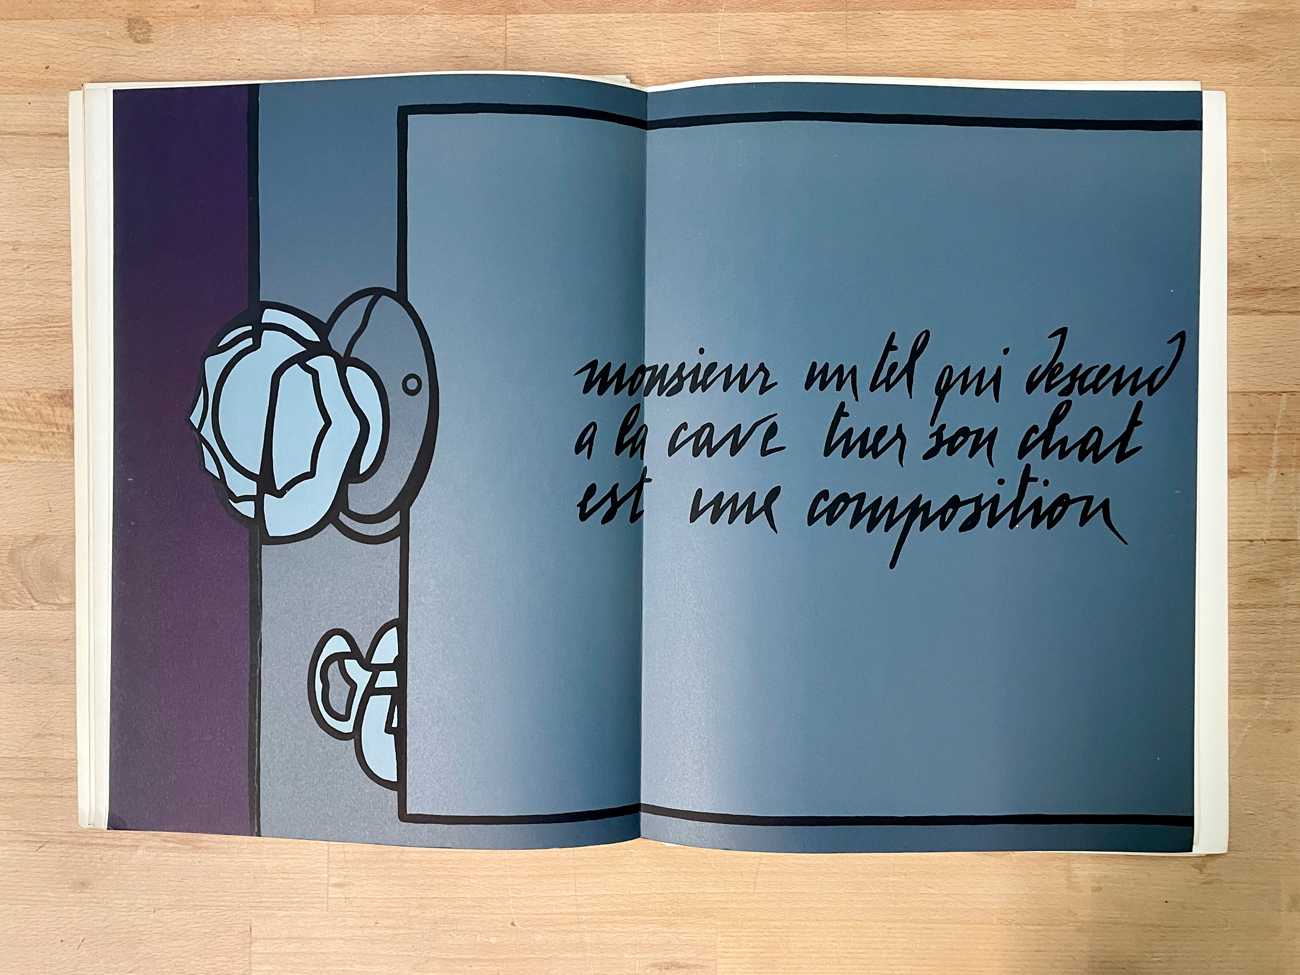 monsieur un tel qui descend
a la cave tuer son chat
est une composition